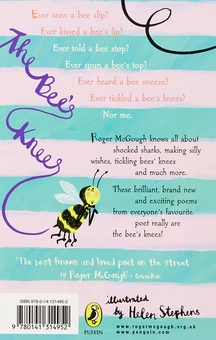 Ever seen a bee slip?
Ever kissed a bee's lip?
Ever told a bee stop?
Ever spun a bee's top?
Ever heard a bee sneeze?
Ever tickled a bee's knees?
Nor me.
The Bee's Knees
Roger McGough knows all about
shocked sharks, making silly
wishes, tickling bees' knees
and much more.
These brilliant, brand new
and exciting poems
from everyone's favourite
poet really are
the bee's knees!
"The best known and loved poet on the street
is Roger McGough" - Guardian
ISBN 978-0-14-131495-2
9 780141 314952
PUFFIN
illustrated by Helen Stephens
www.rogermcgough.org.uk
www.penguin.com